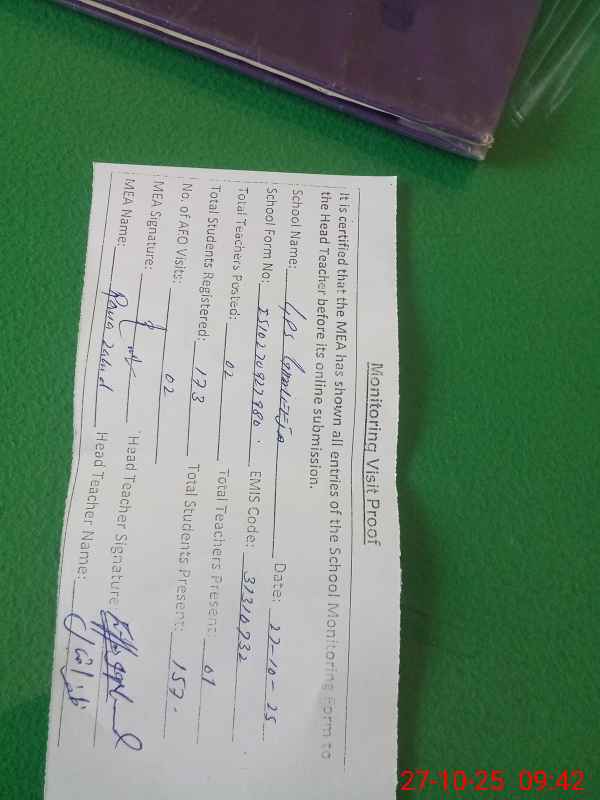 Monitoring Visit Proof
It is certified that the MEA has shown all entries of the School Monitoring Form to
the Head Teacher before its online submission.
School Name: GPS Date: 27-10-25
School Form No: EMIS Code: 37310732
Total Teachers Posted: 02 Total Teachers Present: 01
Total Students Registered: 173 Total Students Present: 157.
No. of AEO Visits: 02
MEA Signature: Head Teacher Signature:
MEA Name: Head Teacher Name:
27-10-25 09:42